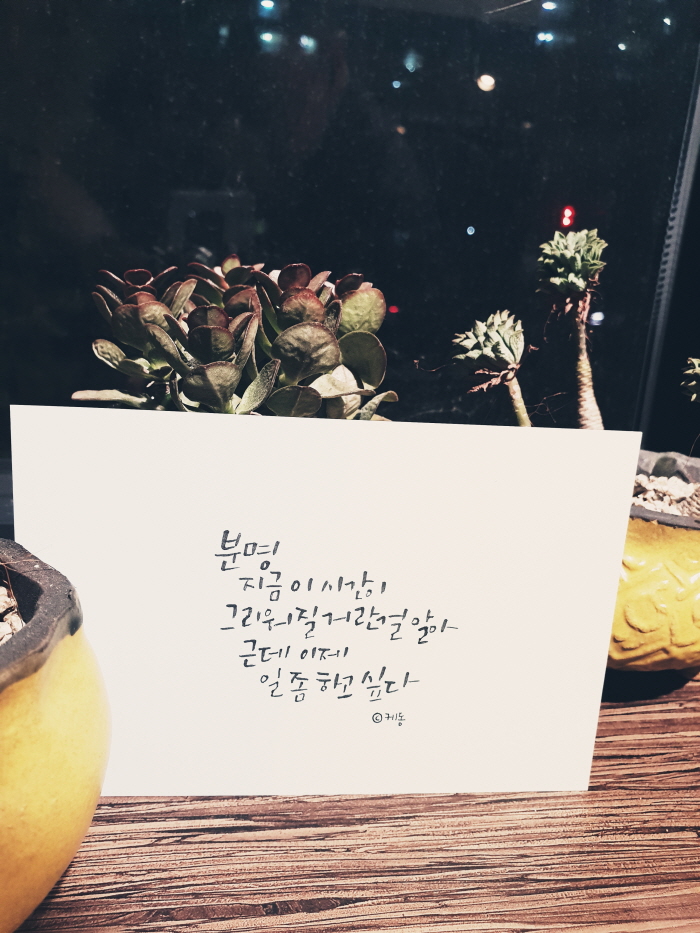 분명
지금 이 시간이
그리워질거란걸 알아
근데 이제
일 좀 하고 싶다
ⓒ케동